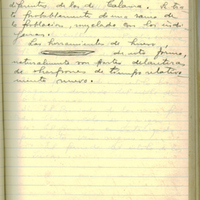 diferentes de los de Calama. Se tra
ta probablemente de una rama de
la poblacion, mezclada con los indí
genas.
Las herramientas de hueso
de esta forma,
naturalmente son partes delanteras
de de tiempo relativa
mente nuevo.